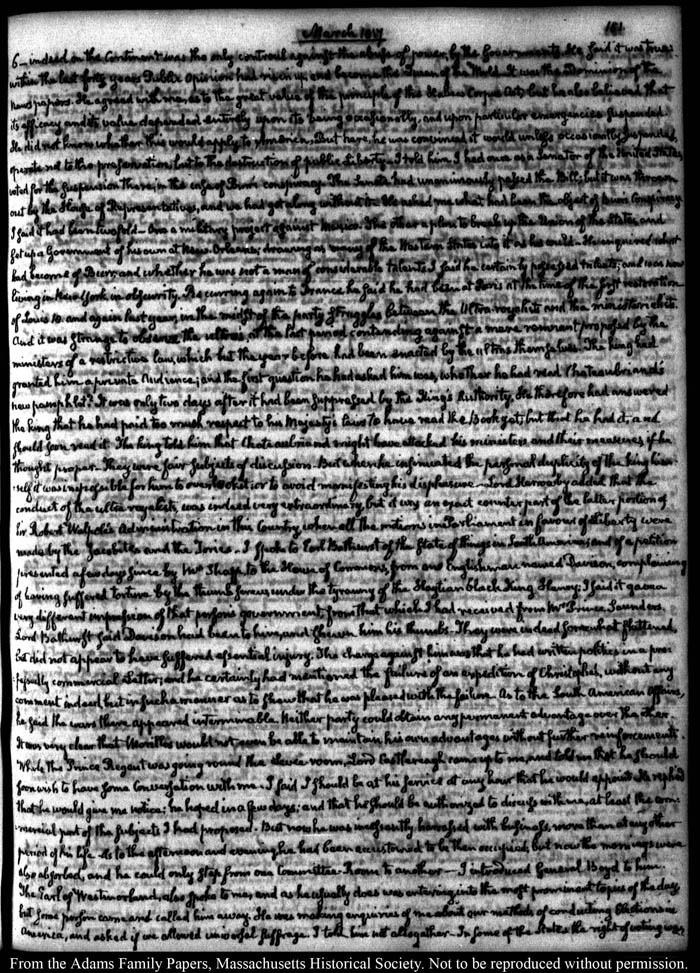 March 1817
161
6_ indeed on the Continent was the only controul against the abuse of power, by the Governments. He said it was true
within the last forty years Public Opinion had risen up and become the Queen of the World. It was the Dominion of the
newspapers. He agreed with me as to the great value of the principle of the Habeas Corpus Act, but he also believed that
its efficacy and its value depended entirely upon its being occasionally, and upon particular emergencies suspended.
He did not know whether this would apply to America, but here, he was convinced it would unless occasionally suspended,
operate not to the preservation, but to the destruction of public Liberty. I told him I had once as a Senator of the United States,
voted for the suspension there, in the case of Burr's conspiracy. The Senate had unanimously passed the Bill; but it was thrown
out by the House of Representatives, and we had got along without it. He asked me what had been the object of Burr's Conspiracy.
I said it had been twofold— One a military project against Mexico. The other a plan to break up the Union of the States, and
set up a Government of his own at New-Orleans; drawing as many of the Western States into it as he could. He enquired what
had become of Burr; and whether he was not a man of considerable talents. I said he certainly possessed talents; and was now
living in New-York in obscurity. Recurring again to France he said he had been at Paris at the time of the first restoration
of Louis 18. and again last year, in the midst of the party struggles between the Ultra-royalists and the ministerialists.
And it was strange to observe the ultras, at the last period contending against a mere remnant proposed by the
ministers of a restrictive law, which but the year before had been enacted by the ultras themselves. The king had
granted him a private Audience; and the first question he had asked him was, whether he had read Chateaubriand's
new pamphlet? It was only two days after it had been suppressed by the King's Authority. He therefore had answered
the king that he had paid too much respect to his Majesty's laws to have read the Book yet; but that he had it, and
should soon read it. The king told him that Chateaubriand might have attacked his ministers and their measures if he
thought proper. They were fair subjects of discussion. But when he insinuated the personal duplicity of the king him-
self it was impossible for him to overlook it or to avoid manifesting his displeasure. Lord Harrowby added that the
conduct of the ultra royalists, was indeed very extraordinary, but it was an exact counterpart of the latter portion of
Sir Robert Walpole's Administration in this Country when all the motions in Parliament in favour of Liberty were
made by the Jacobites and the Tories. I spoke to Earl Bathurst of the State of things in South America; and of a petition
presented a few days since by Mr in the House of Commons, from an Englishman named Davison, complaining
of having suffered torture by the thumb screws under the tyranny of the Haytian black King Henry; I said it gave a
very different impression of that person's government, from that which I had received from Mr Prince Saunders.
Lord Bathurst said Davison had been to him, and shewn him his thumbs. They were indeed somewhat flattened,
but did not appear to have suffered essential injury. The charge against him was that he had written politics in a pro-
fessedly commercial Letter; and he certainly had mentioned the failure of an expedition of Christophe's, without any
comment indeed but in such a manner as to shew that he was pleased with the failure. As to the South American affairs,
he said the wars there appeared interminable. Neither party could obtain any permanent advantage over the other.
It was very clear that Morillo would not even be able to maintain his own advantages without further reinforcement.
While the Prince Regent was going round the levee-room, Lord Castlereagh came up to me, and told me that he should
soon wish to have some Conversation with me. I said I should be at his service at any hour that he would appoint. He replied
that he would give me notice; he hoped in a few days; and that he should be authorized to discuss with me, at least the com-
mercial part of the subjects I had proposed. But now he was incessantly harassed with business, more than at any other
period of his life. As to the afternoon and evening he had been accustomed to be then occupied, but now the mornings were
also absorbed, and he could only step from one Committee-Room to another— I introduced General Boyd to him.
The Earl of Westmorland, also spoke to me, and as he usually does was entering into the most prominent topics of the day,
but some person came and called him away. He was making enquiries of me about our methods of conducting Elections in
America, and asked if we allowed universal suffrage. I told him not altogether— In some of the States the right of voting was
From the Adams Family Papers, Massachusetts Historical Society. Not to be reproduced without permission